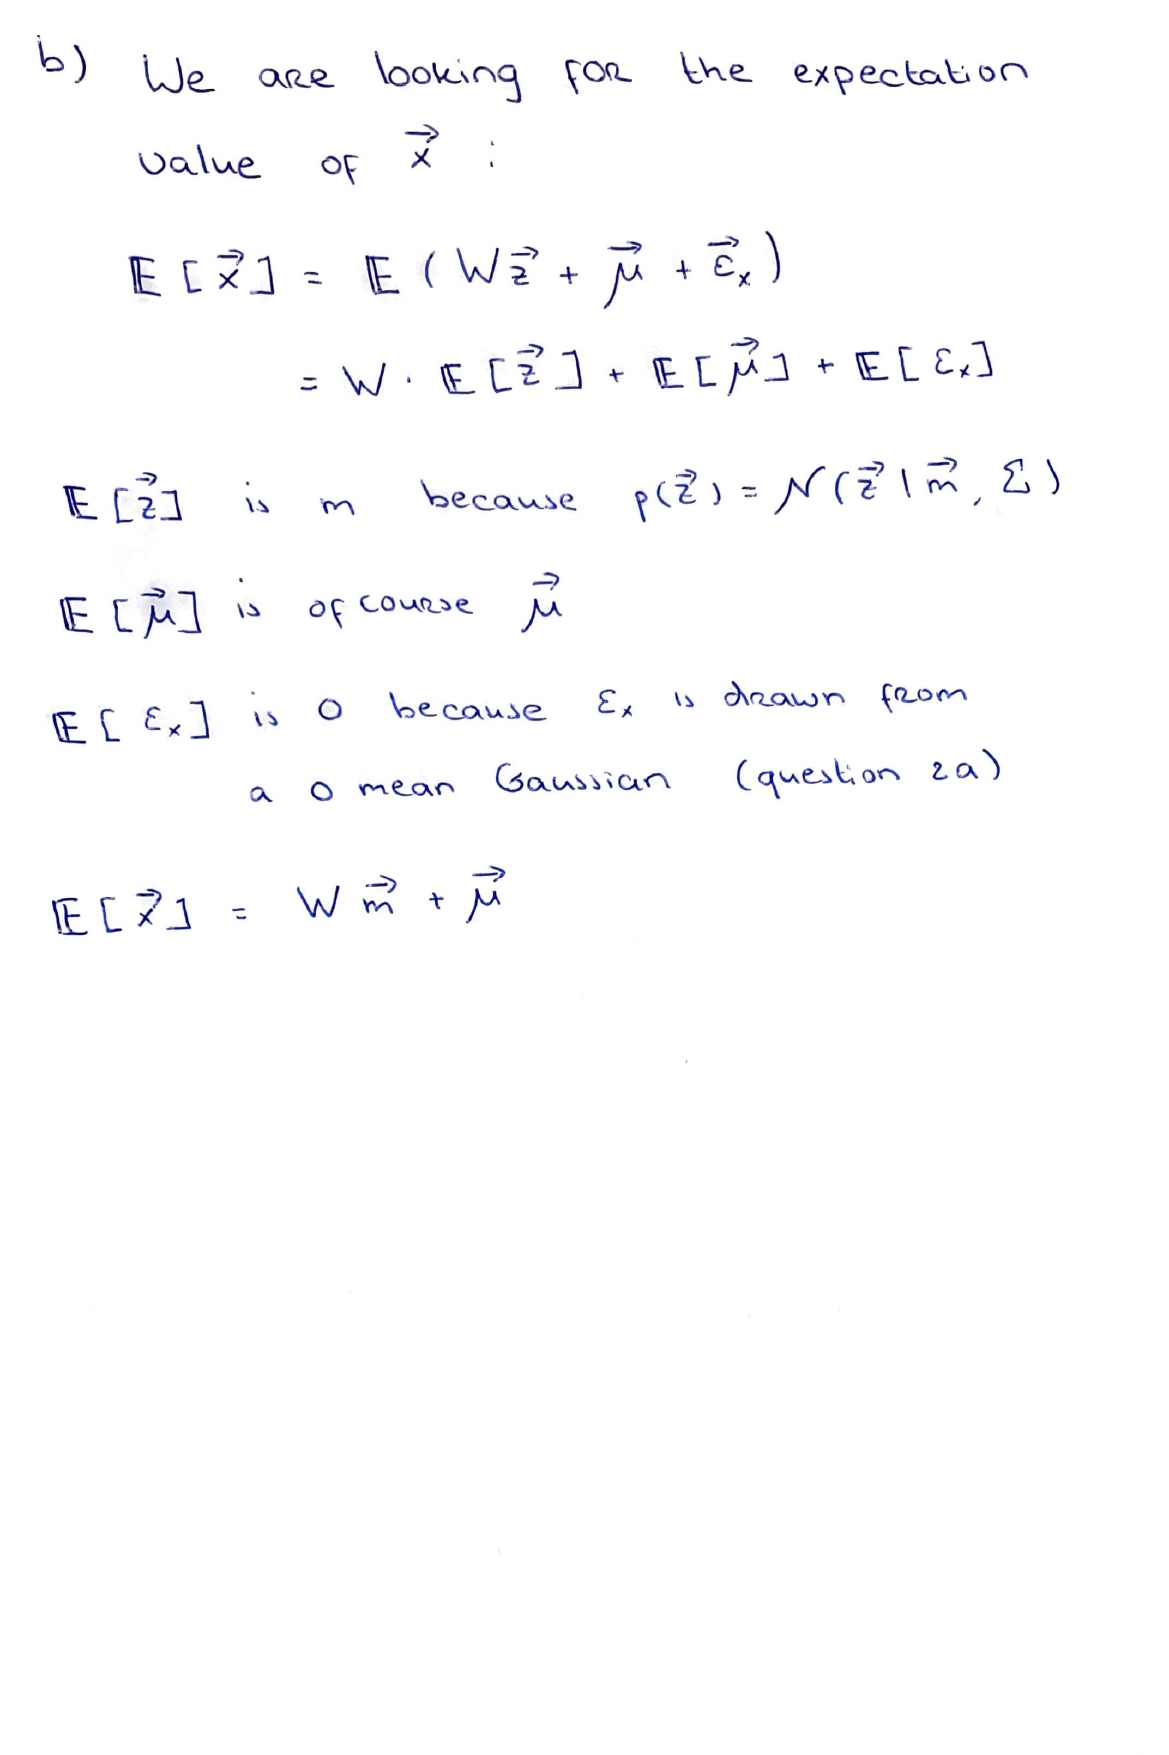 b) We are looking for the expectation
value of x⃗ :
𝔼 [x⃗] = 𝔼 (Wz⃗ + μ⃗ + ε⃗ₓ)
= W · 𝔼 [z⃗] + 𝔼 [μ⃗] + 𝔼 [εₓ]
𝔼 [z⃗] is m because p(z⃗) = N(z⃗ | m⃗, Σ)
𝔼 [μ⃗] is of course μ⃗
𝔼 [εₓ] is 0 because εₓ is drawn from
a 0 mean Gaussian (question 2a)
𝔼 [x⃗] = W m⃗ + μ⃗